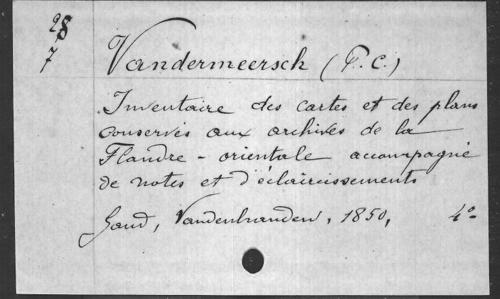 28
7
Vandermeersch (P.C.)
Inventaire des cartes et des plans
conservés aux archives de la
Flandre-orientale accompagné
de notes et d'éclaircissements
Gand, Vandenhranden, 1850, 4º